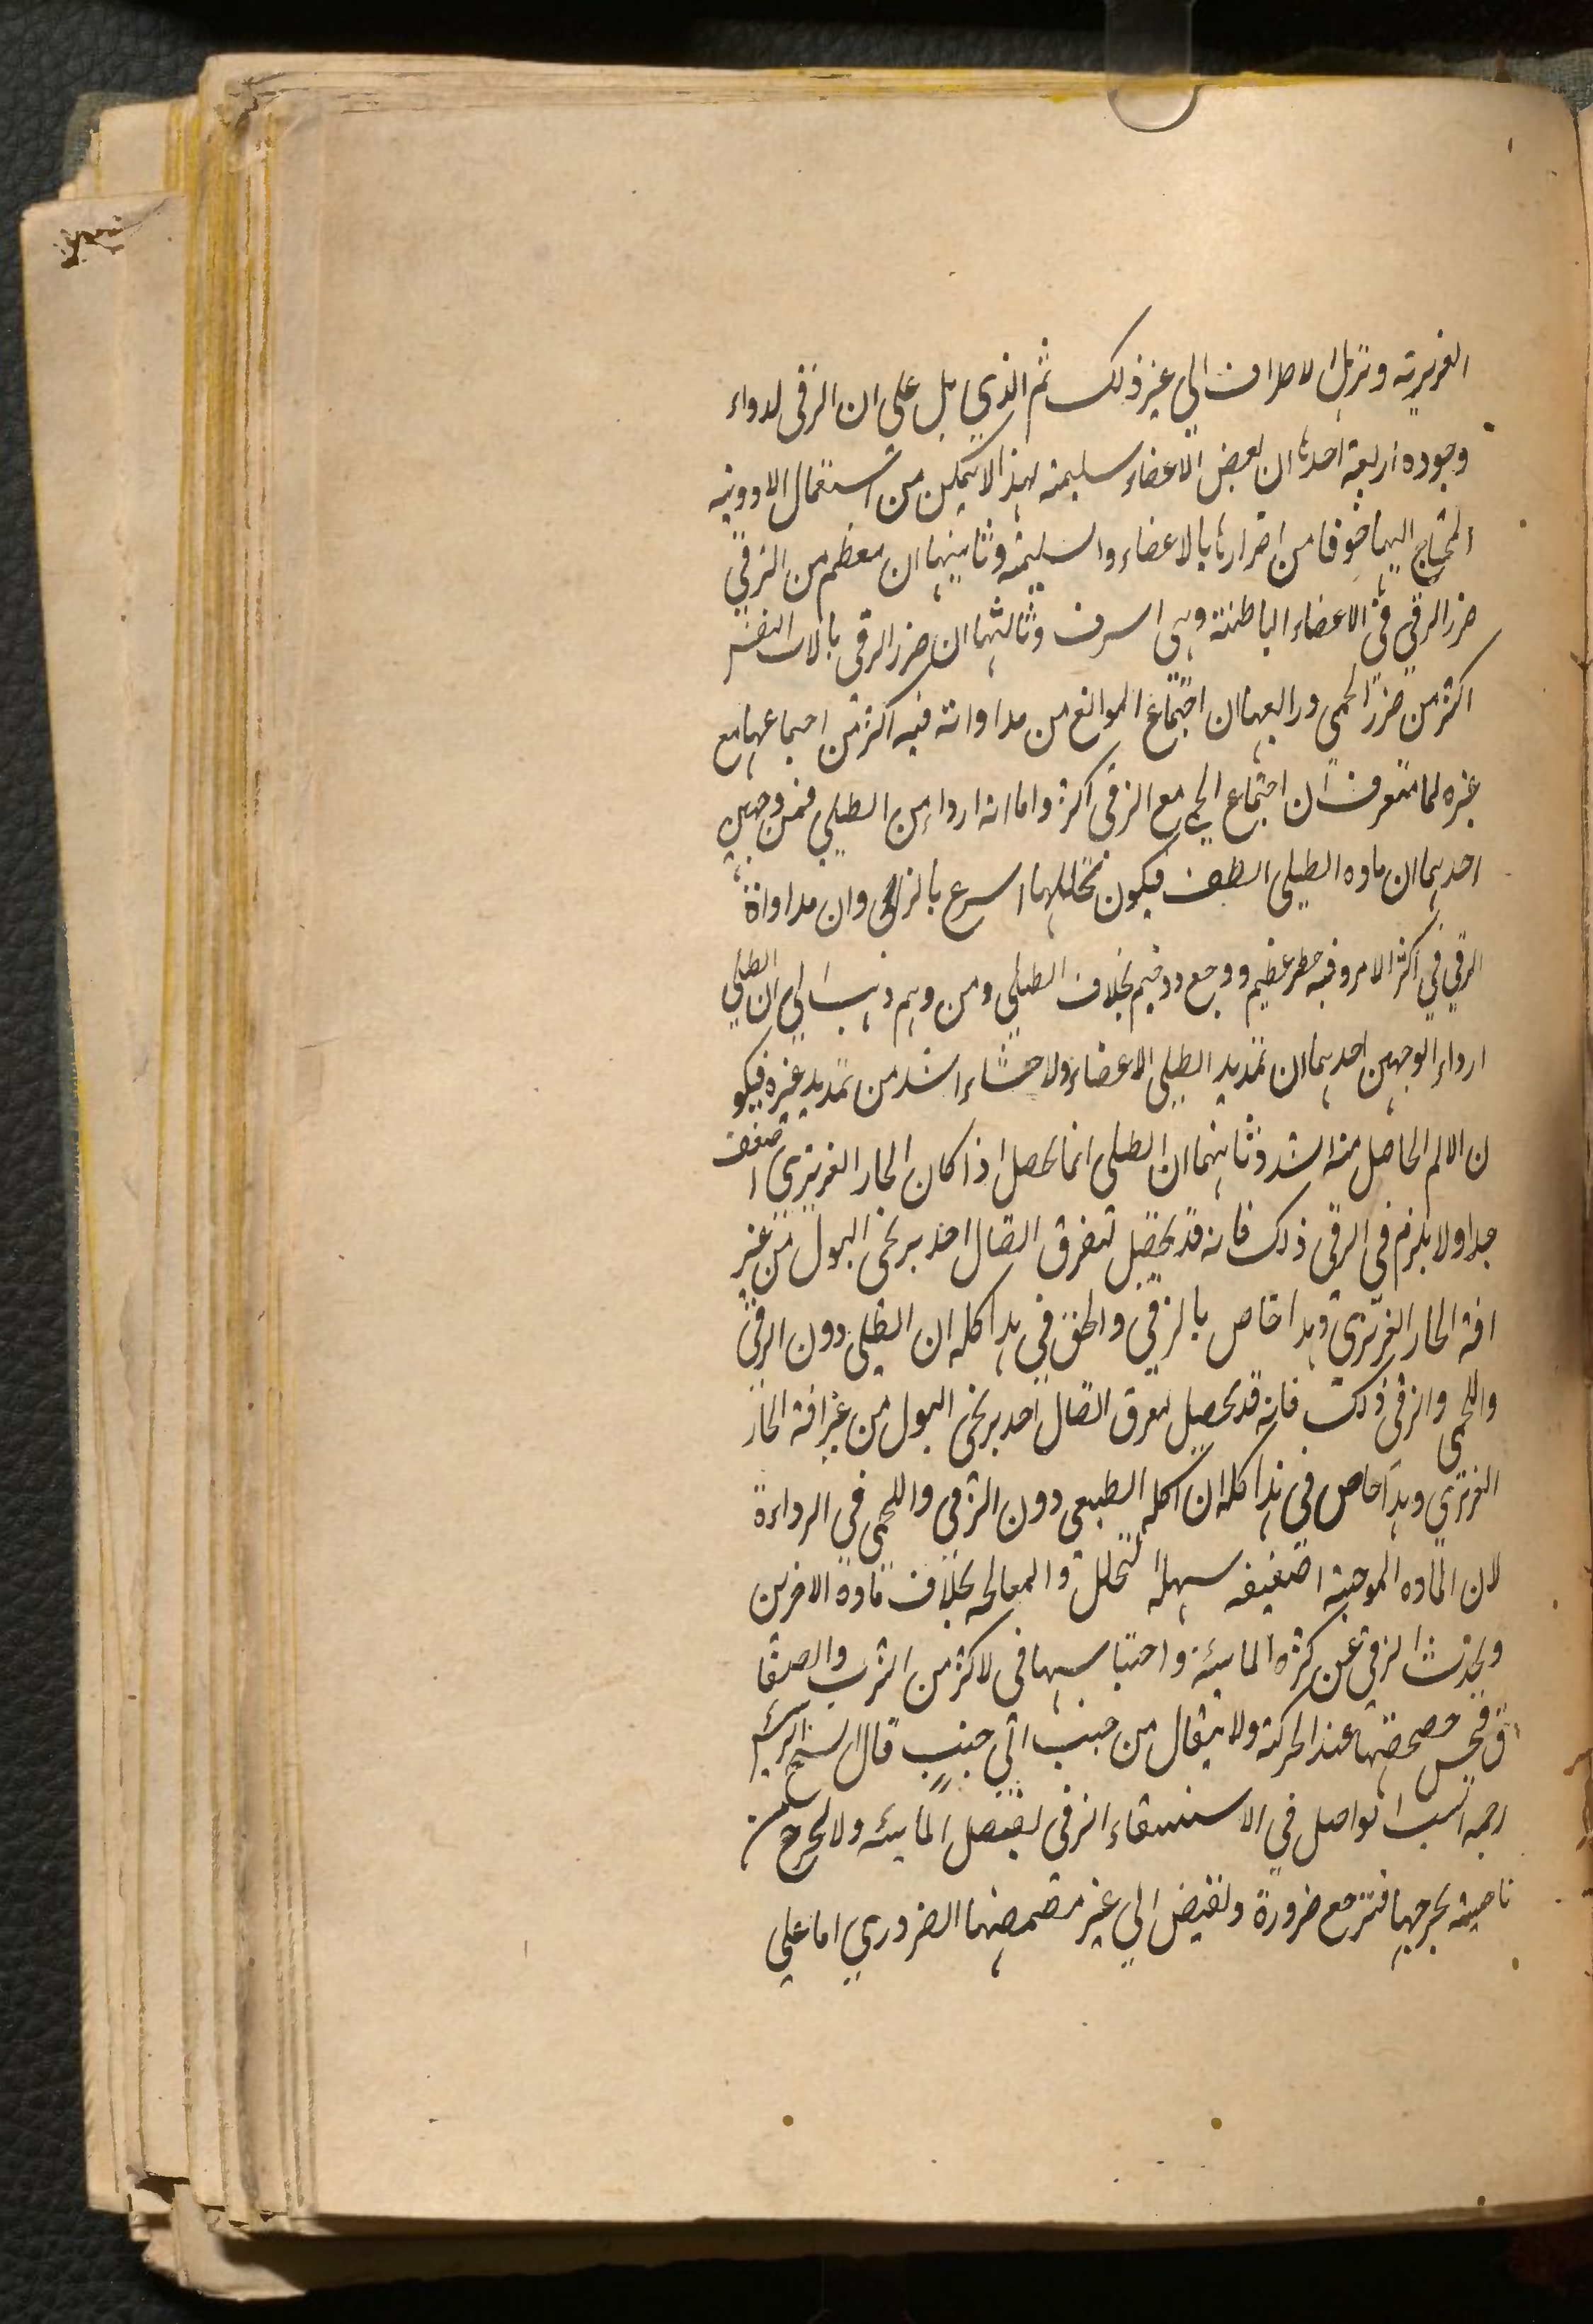 الغريزية وتزيل الاطراف الي غير ذلك ثم الذي يدل علي ان الزقى لدواء
وجوده اربعة احدها ان بعض الاعضاء سليمة لهذا لا يتمكن من استعمال الادوية
المحتاج اليها خوفا من اضرارها بالاعضاء والسليمة وثانيها ان معظم من الزقي
ضرر الزقي في الاعضاء الباطنة وهي اسرف وثالثها ان ضرر الزقى بالات النفس
اكثر من ضرر اللحمي ورابعها ان اجتماع الموانع من مداواته فيه اكثر من اجماعها مع
غيره لما ستعرف ان اجتماع الحمي مع الزقى اكثر واما انه ارداء من الطبلي فمن وجهين
احدهما ان ماده الطبلى الطف فيكون تحليلها اسرع بالزقى وان مداواة
الزقي في اكثر الامر وفيه خطر عظيم ووجع بخلاف الطبلي ومن وهم ذهب الي ان الطبلي
ارداء الوجهين احدهما ان تمديد الطبلى الاعضاء ولاحشاء اشد من تمديد غيره فيكو
ن الالم الحاصل منه اشد وثانيهما ان الطبلى انما يحصل اذا كان الحار الغريزي اضعف
جدا ولا يلزم في الزقى ذلك فانه قد يحصل لتفرق اتصال احد بربخى البول من غير
افة الحار الغريزي وهذا خاص بالزقي والحق في هذا كله ان الطبلى دون الزقى
واللحمى والزقى ذلك فانه قد يحصل لتفرق اتصال احد بربخى البول من غير افة الحار
الغريزي وهذا خاص في هذا كله ان اكله الطبعى دون الزقي واللحمى في الرداءة
لان الماده الموجبة اضعيفه سهلة لتحلل والمعالجه بخلاف مادة الاخرين
ويحدث الزقى عن كثره المايئة واحتباسها في لاكثر من الثرب والصفا
ق فحس خضخضتها عند الحركة ولا ينتقال من جنب اتي جنب قال الشيخ الرئيس
رحمه السبب تواصل في الاستسقاء الزقى لفضل المايئه ولا تخرج من
ناحية بخرجها فترجع ضرورة ولفيض الي غير مقمضها الضروري اما علي